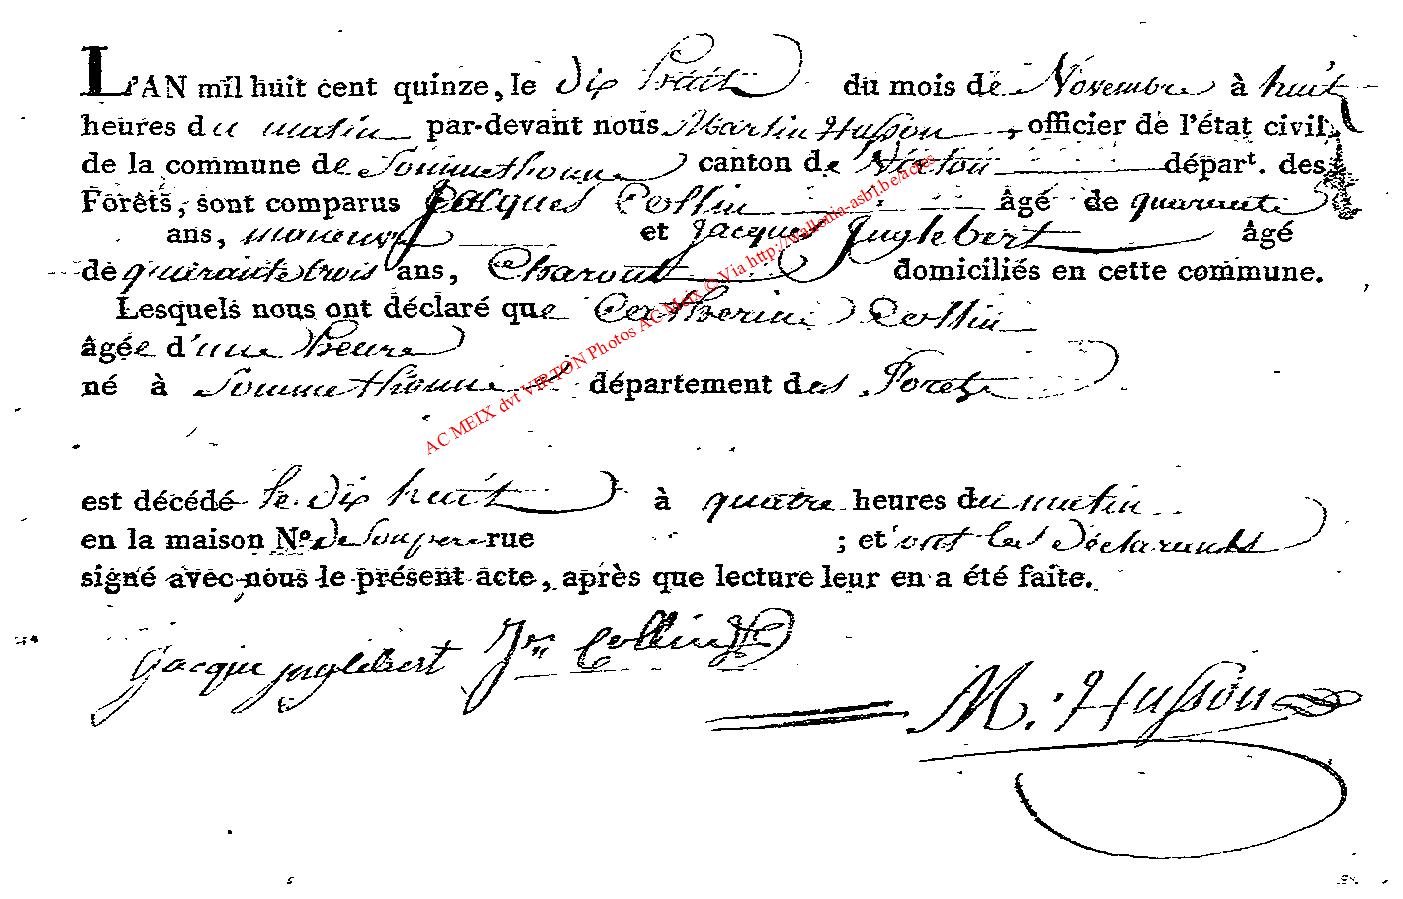 L'AN mil huit cent quinze, le dix huit du mois de Novembre à huit
heures du matin par-devant nous Martin Husson, officier de l'état civil
de la commune de Sommethonne canton de Virton départ. des
Forêts, sont comparus Jacques Collin âgé de quarante
ans, manœuvre et Jacques Juglebert âgé
de quarante trois ans, Charon domiciliés en cette commune.
Lesquels nous ont déclaré que Catherine Collin
âgée d'une heure
né à Sommethonne département des Forets
est décédé le dix huit à quatre heures du matin
en la maison No. de son pere rue ; et ont les déclarants
signé avec nous le présent acte, après que lecture leur en a été faite.
Jacque juglebert Collin
M. Husson
AC MEIX dvt VIRTON Photos AC Meix © Via http://wallonia-asbl.be/actes